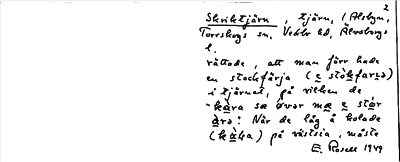 2
Skriktjärn, tjärn, i Alsbyn,
Torrskogs sn, Vedbo hd, Älvsborgs
l.
rättade, att man förr hade
en stockfärja (e stòkfarja)
i tjärnet, på vilken de
"kàra sæ øvər mæ e stór
àrə". När de låg å kolade
(kàła) på västsia, måste
E. Rosell 1949